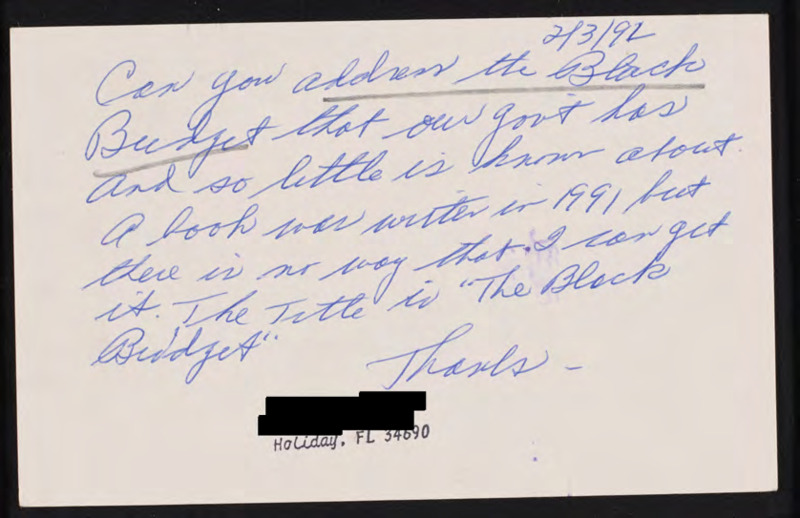 2/3/92
Can you address the Black
Budget that our gov't has
and so little is known about.
A book was writen in 1991 but
there is no way that I can get
it. The Title is "The Black
Budget"
Thanks -
Holiday, FL 34690